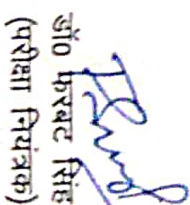 डॉ० फरबट सिंह
(परीक्षा नियंत्रक)